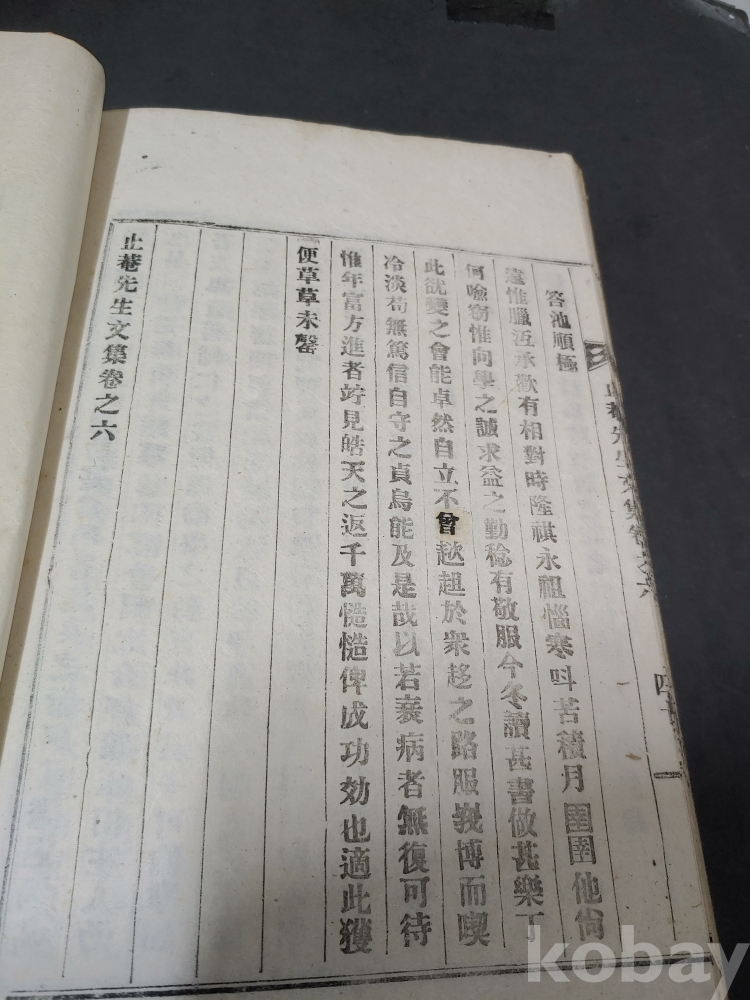 答池順極
遠惟臘沍承歡有相對時隆祺永祖惱寒呌苦積月圉圉他尙
何喩窃惟向學之誠求益之勤稔有敬服今冬讀甚書做甚樂丁
此舐變之會能卓然自立不曾趑趄於衆趍之路服義博而喫
冷淡苟無篤信自守之貞烏能及是哉以若衰病者無復可待
惟年富方進者竚見皓天之返千萬慥慥俾成功効也適此獲
便草草未罄
止菴先生文集卷之六
止菴先生文集卷之六
四十一
kobay